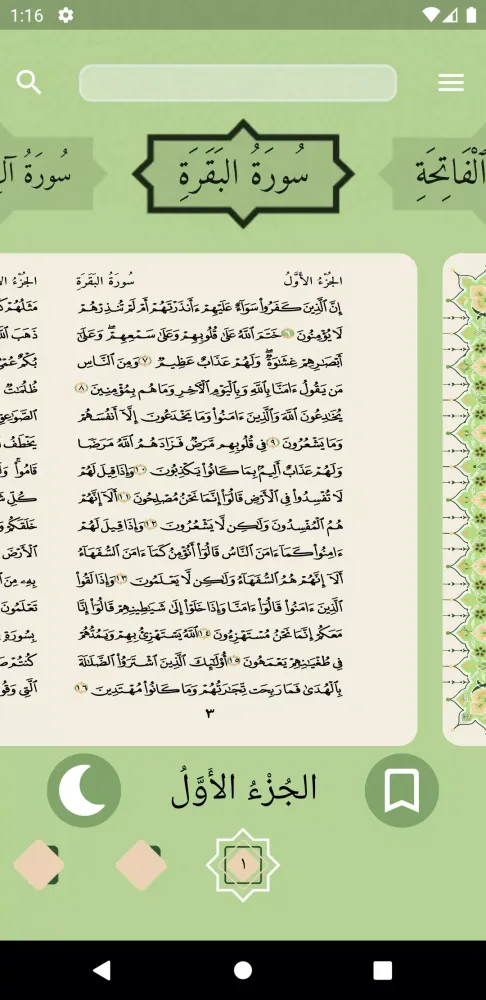 1:16
ٱلْفَاتِحَةِ
سُورَةُ البَقَرَةِ
سُورَةُ آلِ
الجُزْءُ الأَوَّلُ سُورَةُ البَقَرَةِ
إِنَّ ٱلَّذِينَ كَفَرُوا۟ سَوَآءٌ عَلَيْهِمْ ءَأَنذَرْتَهُمْ أَمْ لَمْ تُنذِرْهُمْ
لَا يُؤْمِنُونَ ٦ خَتَمَ ٱللَّهُ عَلَىٰ قُلُوبِهِمْ وَعَلَىٰ سَمْعِهِمْ ۖ وَعَلَىٰٓ
أَبْصَٰرِهِمْ غِشَٰوَةٌ ۖ وَلَهُمْ عَذَابٌ عَظِيمٌ ٧ وَمِنَ ٱلنَّاسِ
مَن يَقُولُ ءَامَنَّا بِٱللَّهِ وَبِٱلْيَوْمِ ٱلْءَاخِرِ وَمَا هُم بِمُؤْمِنِينَ ٨
يُخَٰدِعُونَ ٱللَّهَ وَٱلَّذِينَ ءَامَنُوا۟ وَمَا يَخْدَعُونَ إِلَّآ أَنفُسَهُمْ
وَمَا يَشْعُرُونَ ٩ فِى قُلُوبِهِم مَّرَضٌ فَزَادَهُمُ ٱللَّهُ مَرَضًا ۖ
وَلَهُمْ عَذَابٌ أَلِيمٌۢ بِمَا كَانُوا۟ يَكْذِبُونَ ١٠ وَإِذَا قِيلَ لَهُمْ
لَا تُفْسِدُوا۟ فِى ٱلْأَرْضِ قَالُوٓا۟ إِنَّمَا نَحْنُ مُصْلِحُونَ ١١ أَلَآ إِنَّهُمْ
هُمُ ٱلْمُفْسِدُونَ وَلَٰكِن لَّا يَشْعُرُونَ ١٢ وَإِذَا قِيلَ لَهُمْ
ءَامِنُوا۟ كَمَآ ءَامَنَ ٱلنَّاسُ قَالُوٓا۟ أَنُؤْمِنُ كَمَآ ءَامَنَ ٱلسُّفَهَآءُ ۗ
أَلَآ إِنَّهُمْ هُمُ ٱلسُّفَهَآءُ وَلَٰكِن لَّا يَعْلَمُونَ ١٣ وَإِذَا لَقُوا۟
ٱلَّذِينَ ءَامَنُوا۟ قَالُوٓا۟ ءَامَنَّا وَإِذَا خَلَوْا۟ إِلَىٰ شَيَٰطِينِهِمْ قَالُوٓا۟ إِنَّا
مَعَكُمْ إِنَّمَا نَحْنُ مُسْتَهْزِءُونَ ١٤ ٱللَّهُ يَسْتَهْزِئُ بِهِمْ وَيَمُدُّهُمْ
فِى طُغْيَٰنِهِمْ يَعْمَهُونَ ١٥ أُو۟لَٰٓئِكَ ٱلَّذِينَ ٱشْتَرَوُا۟ ٱلضَّلَٰلَةَ
بِٱلْهُدَىٰ فَمَا رَبِحَت تِّجَٰرَتُهُمْ وَمَا كَانُوا۟ مُهْتَدِينَ ١٦
٣
الجُزْءُ
مَثَلُهُمْ
ذَهَبَ
بُكْمٌ عُمْىٌ
ظُلُمَٰتٌ
ٱلصَّوَٰعِقِ
يَخْطَفُ
قَامُوا۟ ۚ
كُلِّ
خَلَقَكُمْ
ٱلْأَرْضَ
بِهِۦ مِنَ
تَعْلَمُونَ
بِسُورَةٍ
كُنتُمْ
ٱلَّتِى
الجُزْءُ الأَوَّلُ
١